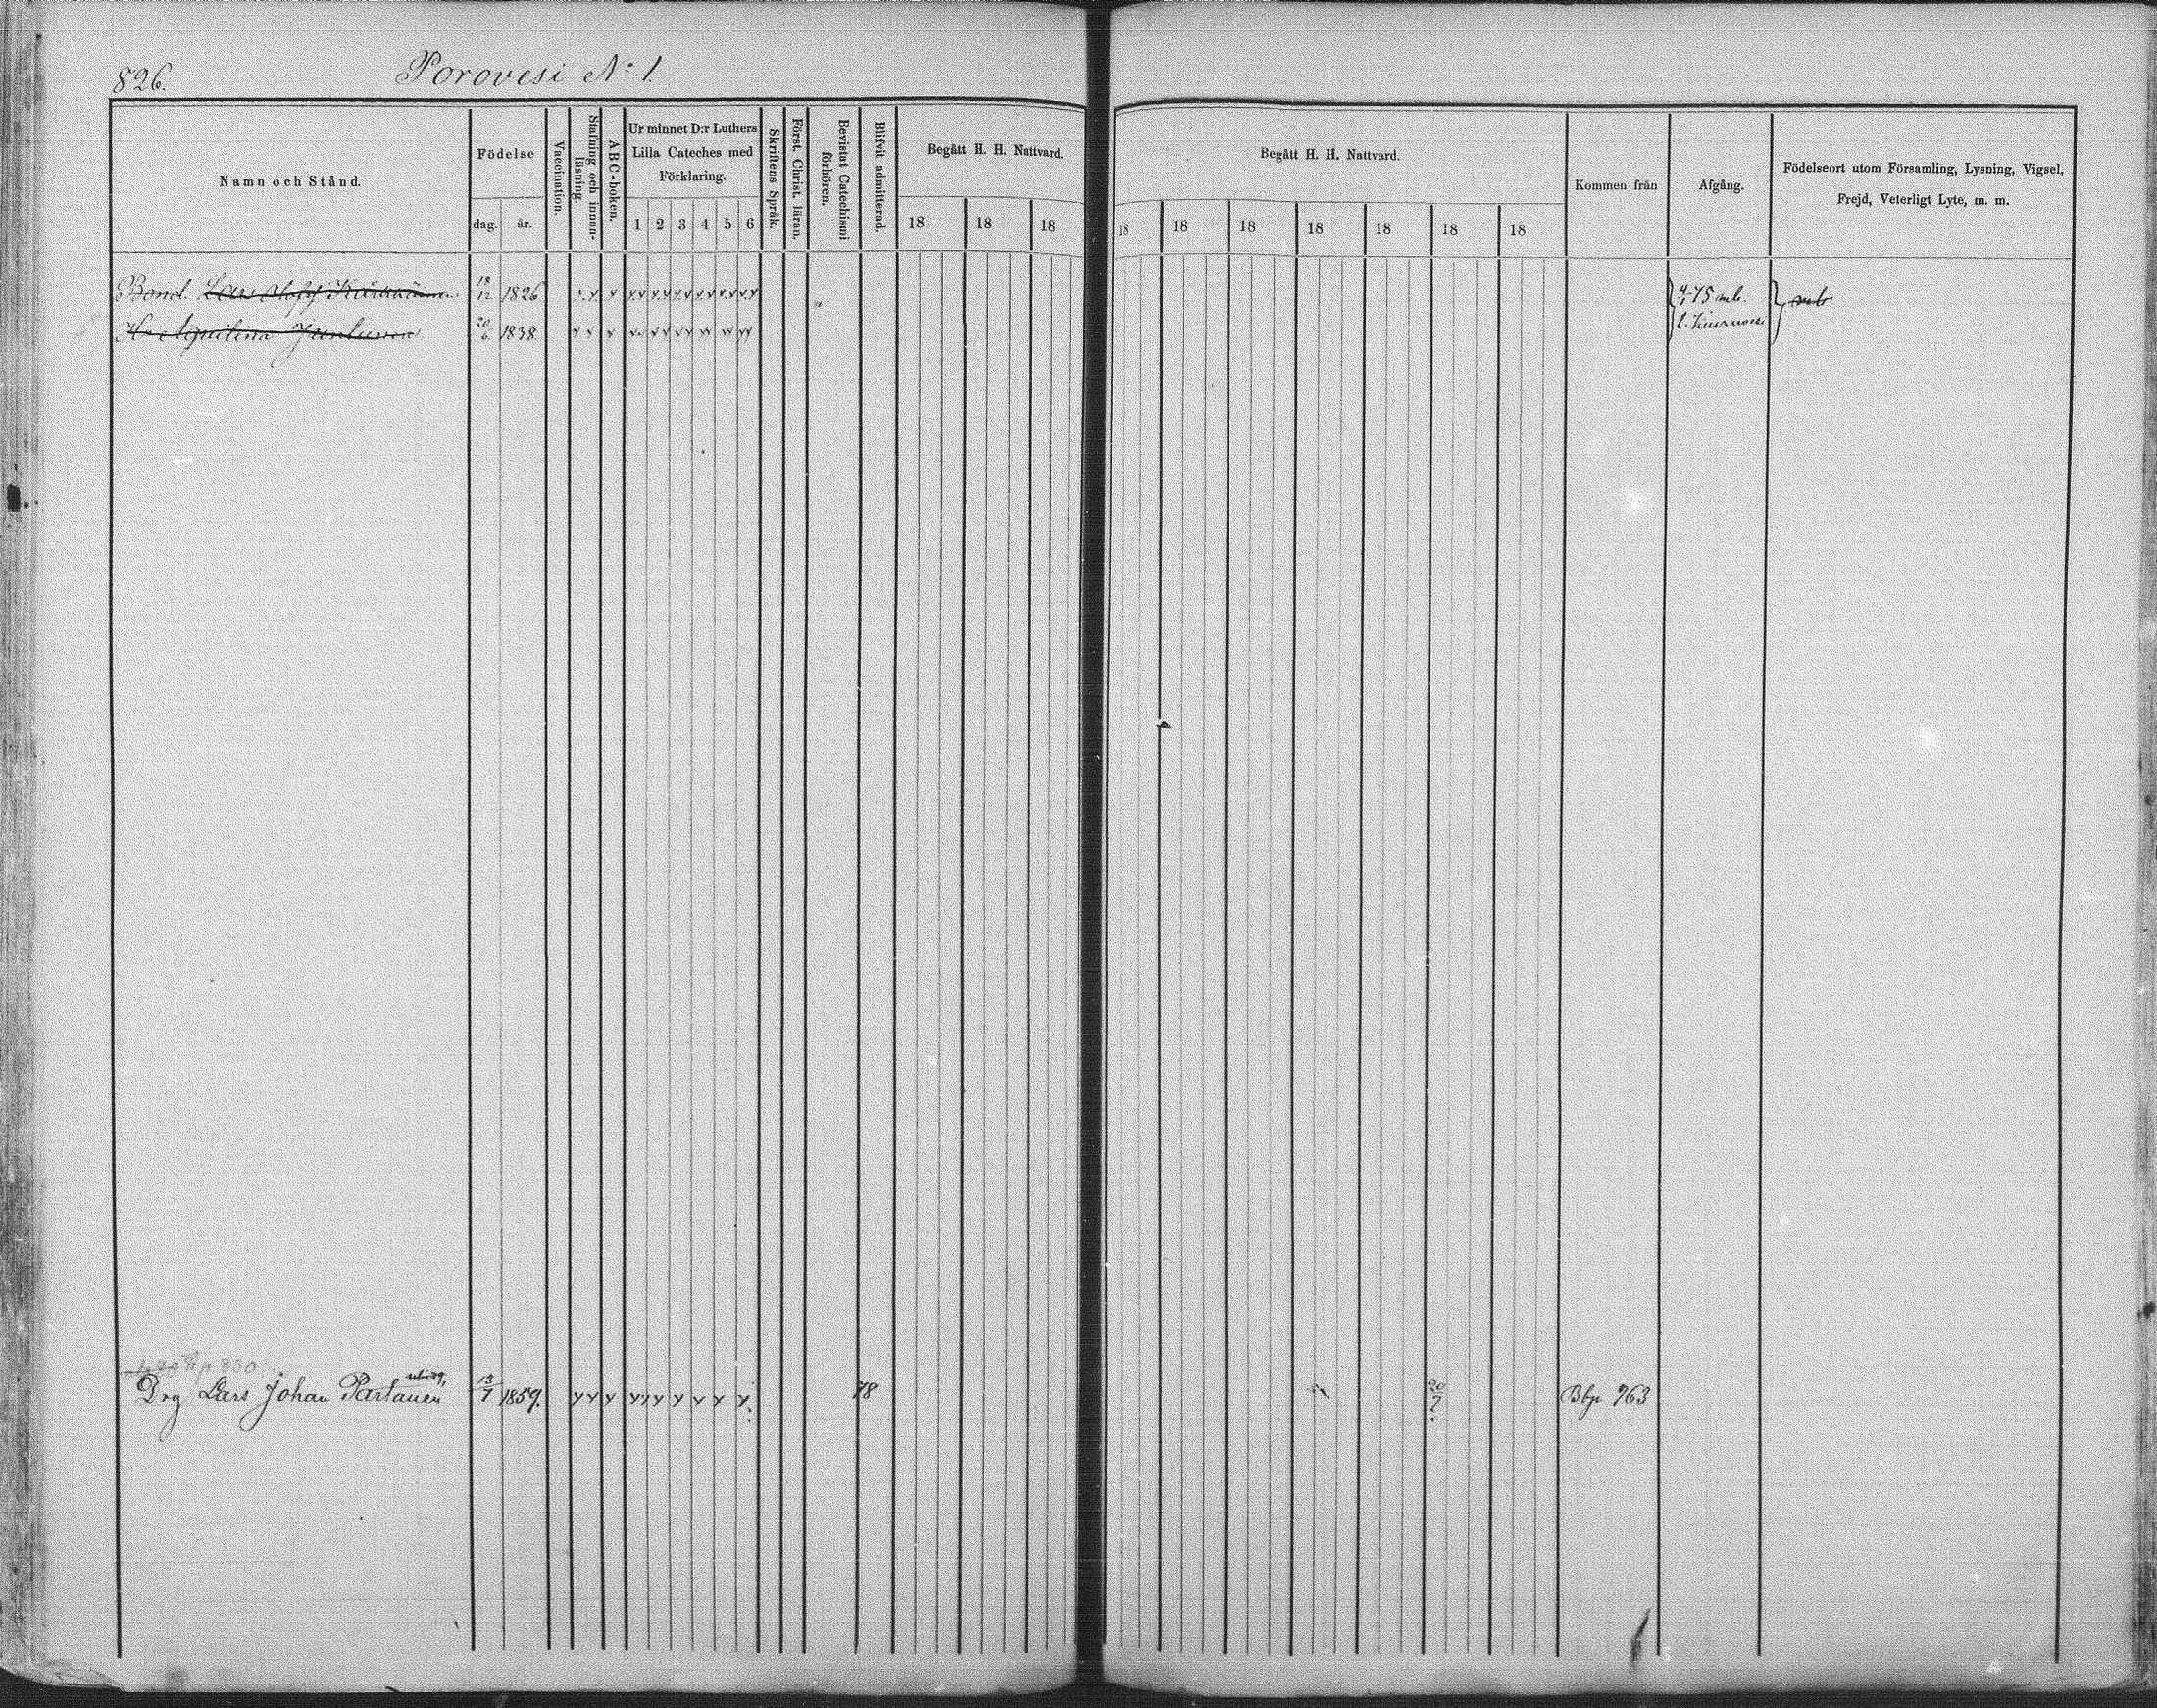 826.
Porovesi No 1.
Namn och Stånd.
Födelse
dag. år.
Vaccination.
Stafning och innan-
läsning.
ABC-boken.
Ur minnet D:r Luthers
Lilla Cateches med
Förklaring.
1 2 3 4 5 6
Skriftens Språk.
Först. Christ. läran.
Bevistat Catechismi
förhören.
Blifvit admitterad.
Begått H. H. Nattvard.
18 18 18
Begått H. H. Nattvard.
18 18 18 18 18 18 18
Kommen från
Afgång.
Födelseort utom Församling, Lysning, Vigsel,
Frejd, Veterligt Lyte, m. m.
Bond. Lars Olof 18/12 1826 4/1 75 mb.
H. Aquilina Jantunen 20/6 1838 t.
p 830
Drg Lars Johan Partanen 13/7 1859. 78 20/7 Bbp 963